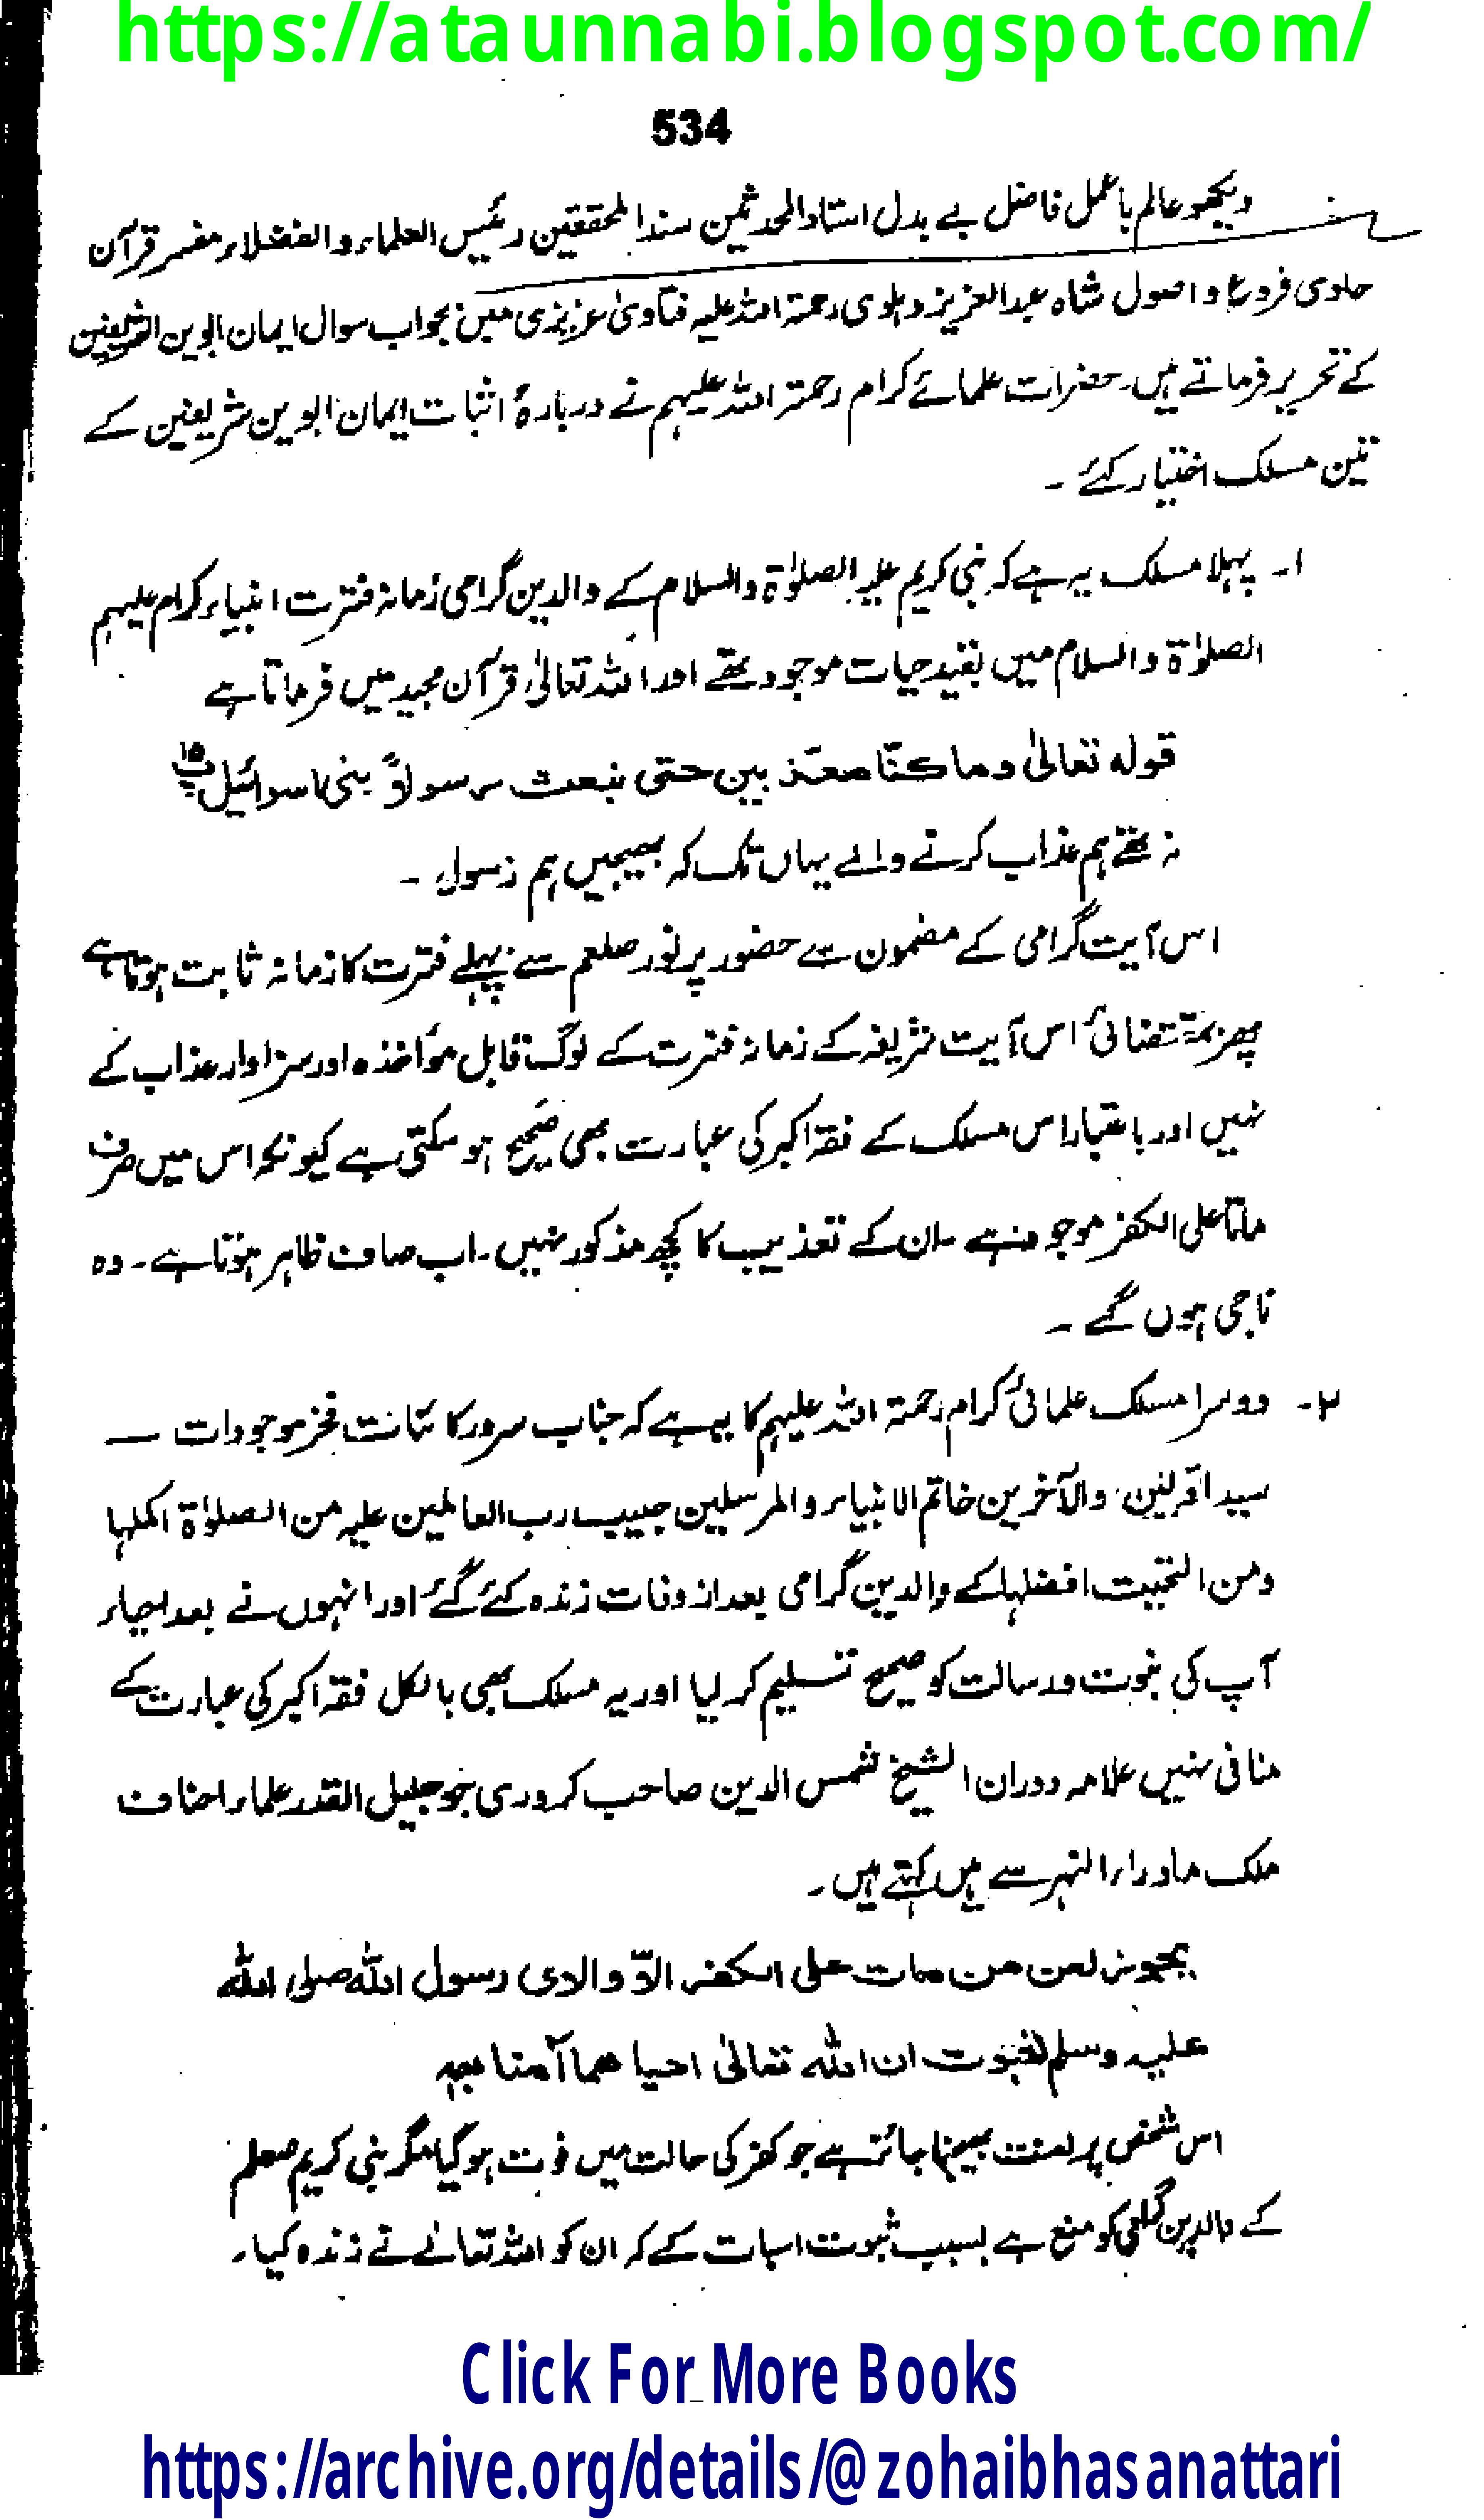 https://ataunnabi.blogspot.com/
534
دیکھو عالم باعمل فاضل بے بدل استاد المحدثین سند المحققین رئیس العلماء والفضلاء مفسر قرآن
حاوی فروع و اصول شاہ عبدالعزیز دہلوی رحمۃ اللہ علیہ فتاویٰ عزیزی میں بجواب سوال ایمان ابوین الشریفین
کے تحریر فرماتے ہیں۔ حضرات علمائے کرام رحمۃ اللہ علیہم نے دربارۂ اثبات ایمان ابوین شریفین کے
تین مسلک اختیار کئے ۔
۱۔ پہلا مسلک یہ ہے کہ نبی کریم علیہ الصلوٰۃ والسلام کے والدین گرامی زمانہ فترت انبیاء کرام علیہم
الصلوٰۃ والسلام میں بقید حیات موجود تھے اور اللہ تعالیٰ قرآن مجید میں فرماتا ہے
قوله تعالیٰ وما کنّا معذّبین حتی نبعث رسولاً بنی اسرائیل پ۱۵
نہ تھے ہم عذاب کرنے والے یہاں تک کہ بھیجیں ہم رسول ۔
اس آیت گرامی کے مضمون سے حضور پرنور صلعم سے پہلے فترت کا زمانہ ثابت ہوتا ہے
پھر بمقتضائی اس آیت شریفہ کے زمانہ فترت کے لوگ قابل مواخذہ اور سزاوار عذاب کے
نہیں اور باعتبار اس مسلک کے فقہ اکبر کی عبارت بھی صحیح ہو سکتی ہے کیونکہ اس میں صرف
ماتا علی الکفر موجود ہے۔ ان کے تعذیب کا کچھ مذکور نہیں۔ اب صاف ظاہر ہوتا ہے۔ وہ
ناجی ہوں گے ۔
۲۔ دوسرا مسلک علمائی کرام رحمۃ اللہ علیہم کا یہ ہے کہ جناب سرور کائنات فخر موجودات —
سید اوّلین والآخرین خاتم الانبیاء والمرسلین حبیب رب العالمین علیہ من الصلوٰۃ اکملہا
ومن التحیت افضلہا کے والدین گرامی بعد از وفات زندہ کئے گئے اور انہوں نے بعد احیاء
آپ کی نبوت و رسالت کو صحیح تسلیم کر لیا اور یہ مسلک بھی بالکل فقہ اکبر کی عبارت کے
منافی نہیں علامہ دوران الشیخ شمس الدین صاحب کروری جو جلیل القدر علماء احناف
ملک ماوراء النہر سے ہیں کہتے ہیں۔
یجوز لعن من مات علی الکفر الاّ والدی رسول اللہ صلی اللہ
علیه وسلم لثبوت ان اللہ تعالیٰ احیا هما آمنا به
اس شخص پر لعنت بھیجنا جائز ہے جو کفر کی حالت میں فوت ہو گیا مگر نبی کریم صلعم
کے والدین گرامی کو منع ہے بسبب ثبوت اسبات کے کہ ان کو اللہ تعالےٰ نے زندہ کیا۔
Click For More Books
https://archive.org/details/@zohaibhasanattari